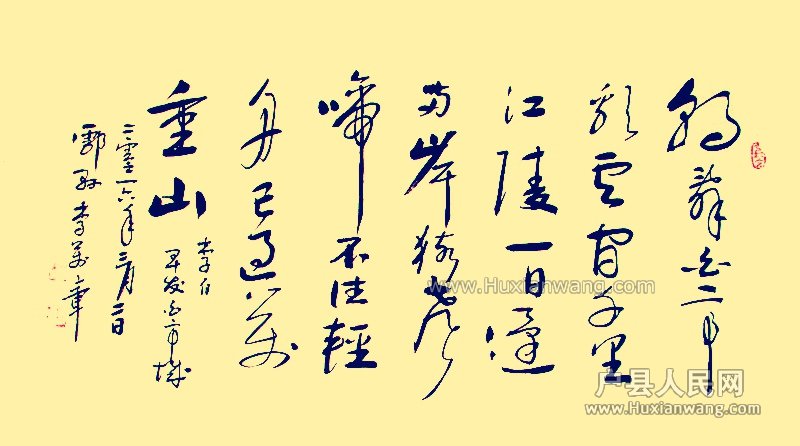 朝辭白帝
彩云間千里
江陵一日還
两岸猿聲
啼不住輕
舟已過萬
重山
李白
早发白帝城
二零一六年三月二日
鄠縣李萬章
www.Huxianwang.com
户县人民网
www.Huxianwang.com